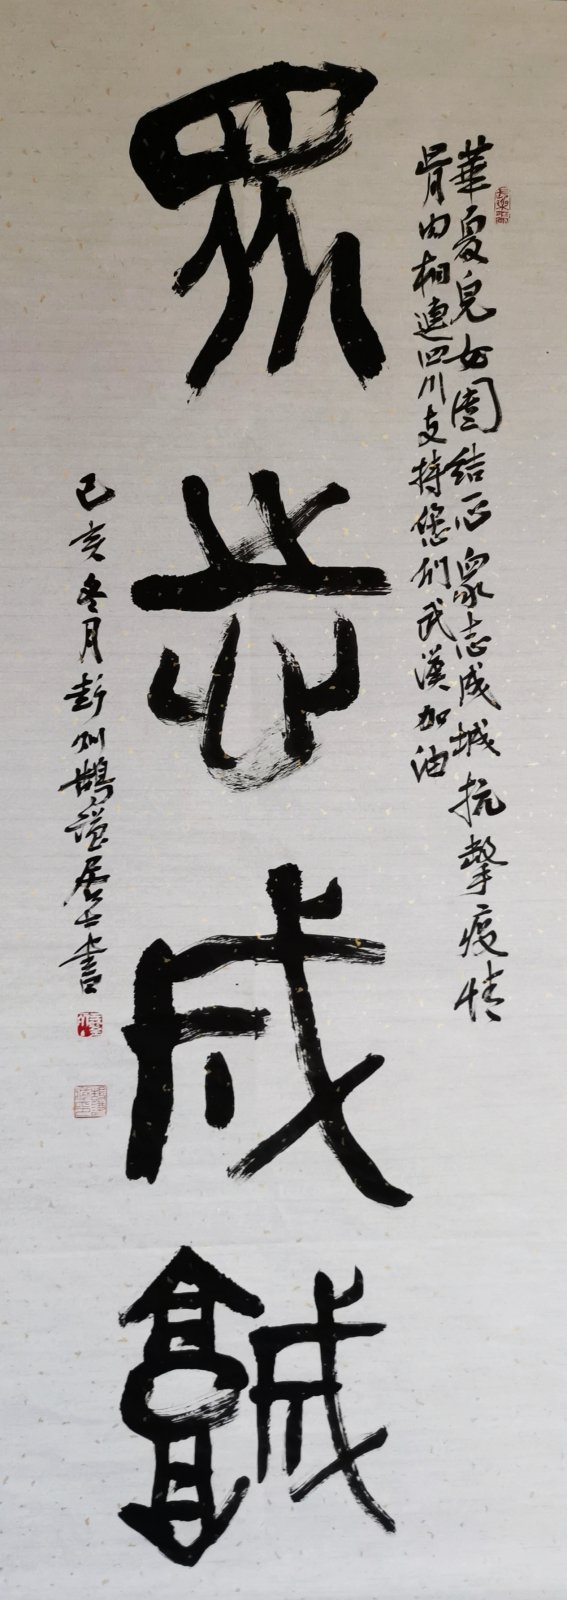 華夏兒女團結一心衆志成城抗擊疫情
骨肉相連四川支持您们武漢加油
眾志成城
己亥冬月彭州鶴謚居士書